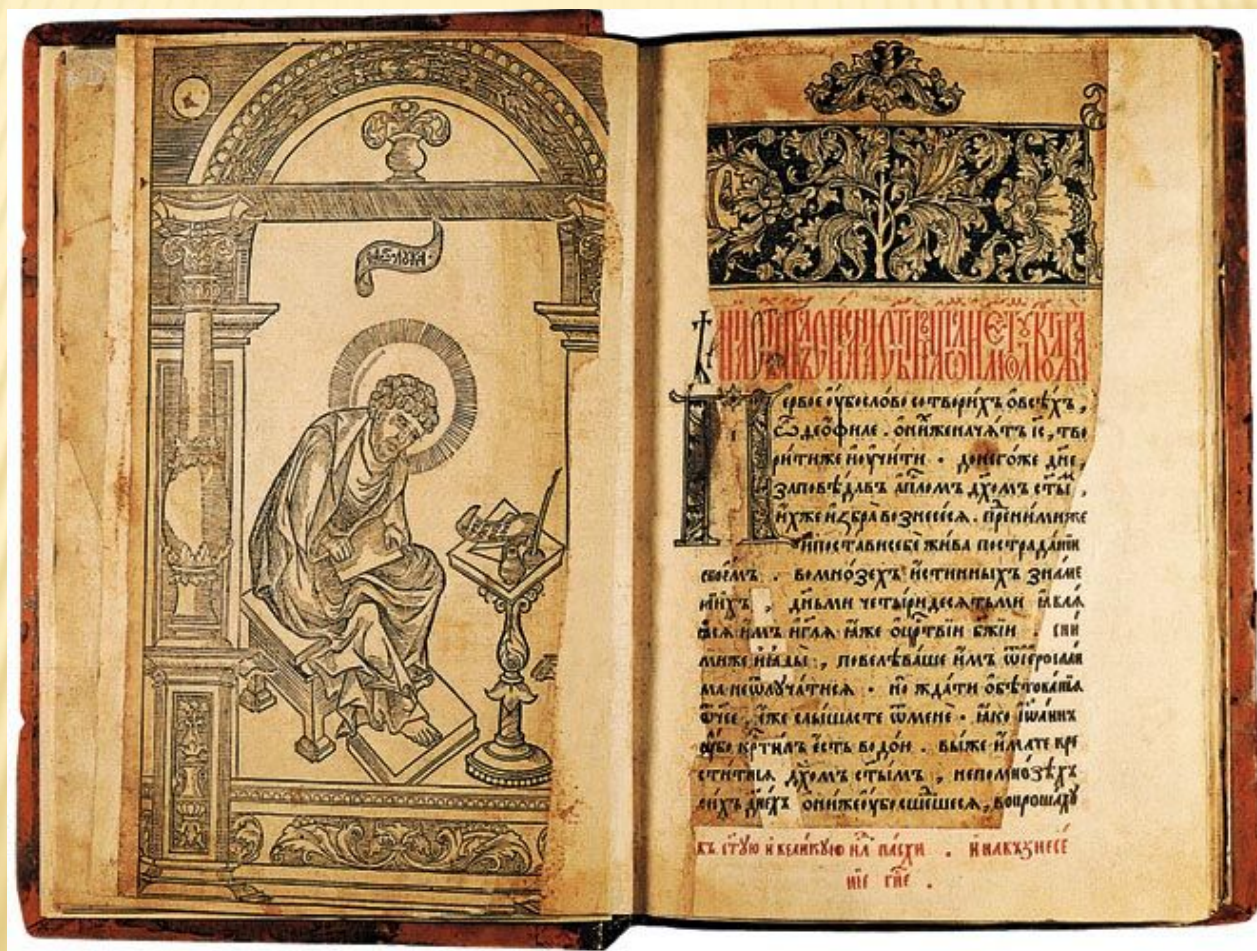 Первое ѹ҆бо слово сотворихъ ѡ҆ всѣхъ ,
ѽ Ѳеѡ҆филе . ѡ҆ ни́хже начѧ́тъ і҃с , тво
ри́ти же и҆ ѹ҆чи́ти . до него́же дн҃е ,
заповѣ́давъ а҆пⷭ҇ломъ дх҃омъ ст҃ы́ⷨ ,
и҆́хже и҆збра̀ вознесе́сѧ . пред̾ ни́миже
и҆ поста́ви себѐ жи́ва по страда́нїи
свое́мъ . во мно́зехъ и҆́стинныхъ зна́ме
нїихъ , дн҃ьми четы́ридесѧтьми ꙗ҆влѧ́
ѧсѧ и҆̀мъ и҆ гл҃ѧ ꙗ҆́же ѡ҆ цр҃твїи бж҃їи . с ни
миже и҆ ꙗ҆ды̀ , повелѣва́ше и҆̀мъ ѿ і҆ерꙋсали
ма не ѿлꙋча́тисѧ . но жда́ти ѡ҆бѣтова́нїѧ
ѻ҆́ч҃ее , е҆́же слы́шасте ѿ менѐ . ꙗ҆́ко і҆ѡа́ннъ
ѹ҆́бо крⷭ҇ти́лъ є҆́сть водо́ю . вы́ же и҆́мате кре
сти́тисѧ дх҃омъ ст҃ы́мъ , не по мно́зѣхъ
си́хъ дн҃ехъ ѡ҆ни́же ѹ҆́бо сше́дшесѧ , вопроша́хꙋ
въ ст҃ꙋю и҆ вели́кꙋю нⷣлю па́схи . и҆ на възнесе́
нїе гⷭ҇не .